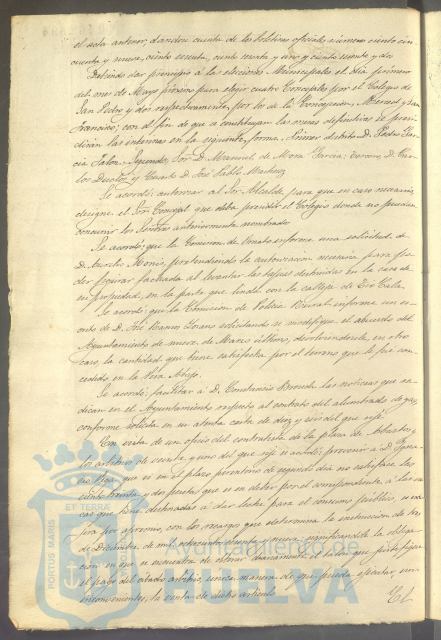 el acta anterior, dandose cuenta de los Boletines oficiales número ciento cin
cuenta y nueve, ciento sesenta, ciento sesenta y uno y ciento sesenta y dos
Debiendo dar principio á las elecciones Municipales el dia primero
del mes de Mayo próximo para elegir cuatro Concejales por el Colegio de
San Pedro y dos respectivamente, por los de la Concepcion, Merced y San
Francisco; con el fin de que se constituyan las mesas definitivas se presi
dirán las interinas en la siguiente forma. Primer distrito D. Pedro Gar
cia Jalon. Segundo, Sor. D. Manuel de Mora Garcia: Tercero, D. Car
los y Cuarto D. José Pablo Martinez
Se acordó: autorizar al Sor. Alcalde para que en caso necesario
designe el Sor. Concejal que deba presidir el Colegio donde no puedan
concurrir los Señores anteriormente nombrados
Se acordó: que la Comision de Ornato informe una solicitud de
D. pretendiendo la autorizacion necesaria para po
der figurar fachada al levantar las tapias destruidas en la casa de
su propiedad, en la parte que linda con la calleja de
Se acordó: que la Comision de Policia Rural informe un es
crito de D. José Ramos Lozano solicitando se modifique el acuerdo del
Ayuntamiento de nueve de Marzo último, devolviendosele, en otro
caso, la cantidad que tiene satisfecha por el terreno que le fué con
cedido en la Vera Abajo.
Se acordó: facilitar á D. Constancio las noticias que ra
dican en el Ayuntamiento respecto al contrato del alumbrado de gas,
conforme solicita en su atenta carta de diez y seis del que rije
En vista de un oficio del contratista de la plaza de Abastos y
los arbitrios de venta, y uno del que rije se acordó: prevenir á D. Igna
cio Vega que si en el plazo perentorio de segundo dia no satisface las
ciento treinta y dos pesetas que es en deber por el correspondiente á las va
cas que tiene destinadas á dar leche para el consumo público, se exi
jirá por apremio, con los recargos que determina la instruccion de tres
de Diciembre de mil ochocientos sesenta y nueve, significandole la obliga
cion en que se encuentra de abonar diariamente el recibo que justifique
el pago del citado arbitrio, unica manera de que pueda efectuar sin
inconvenientes, la venta de dicho articulo
El
PORTUS MARIS
ET TERRÆ
Ayuntamiento de
HUELVA